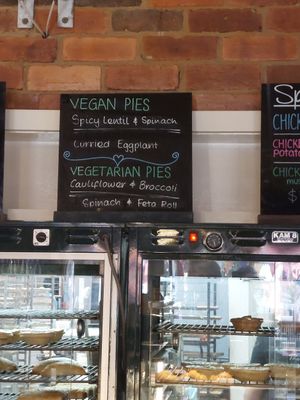 VEGAN PIES
Spicy Lentil & Spinach
Curried Eggplant
VEGETARIAN PIES
Cauliflower & Broccoli
Spinach & Feta Roll
Sp
CHICK
CHICK
Potat
CHICK
mus
$
KAM 8